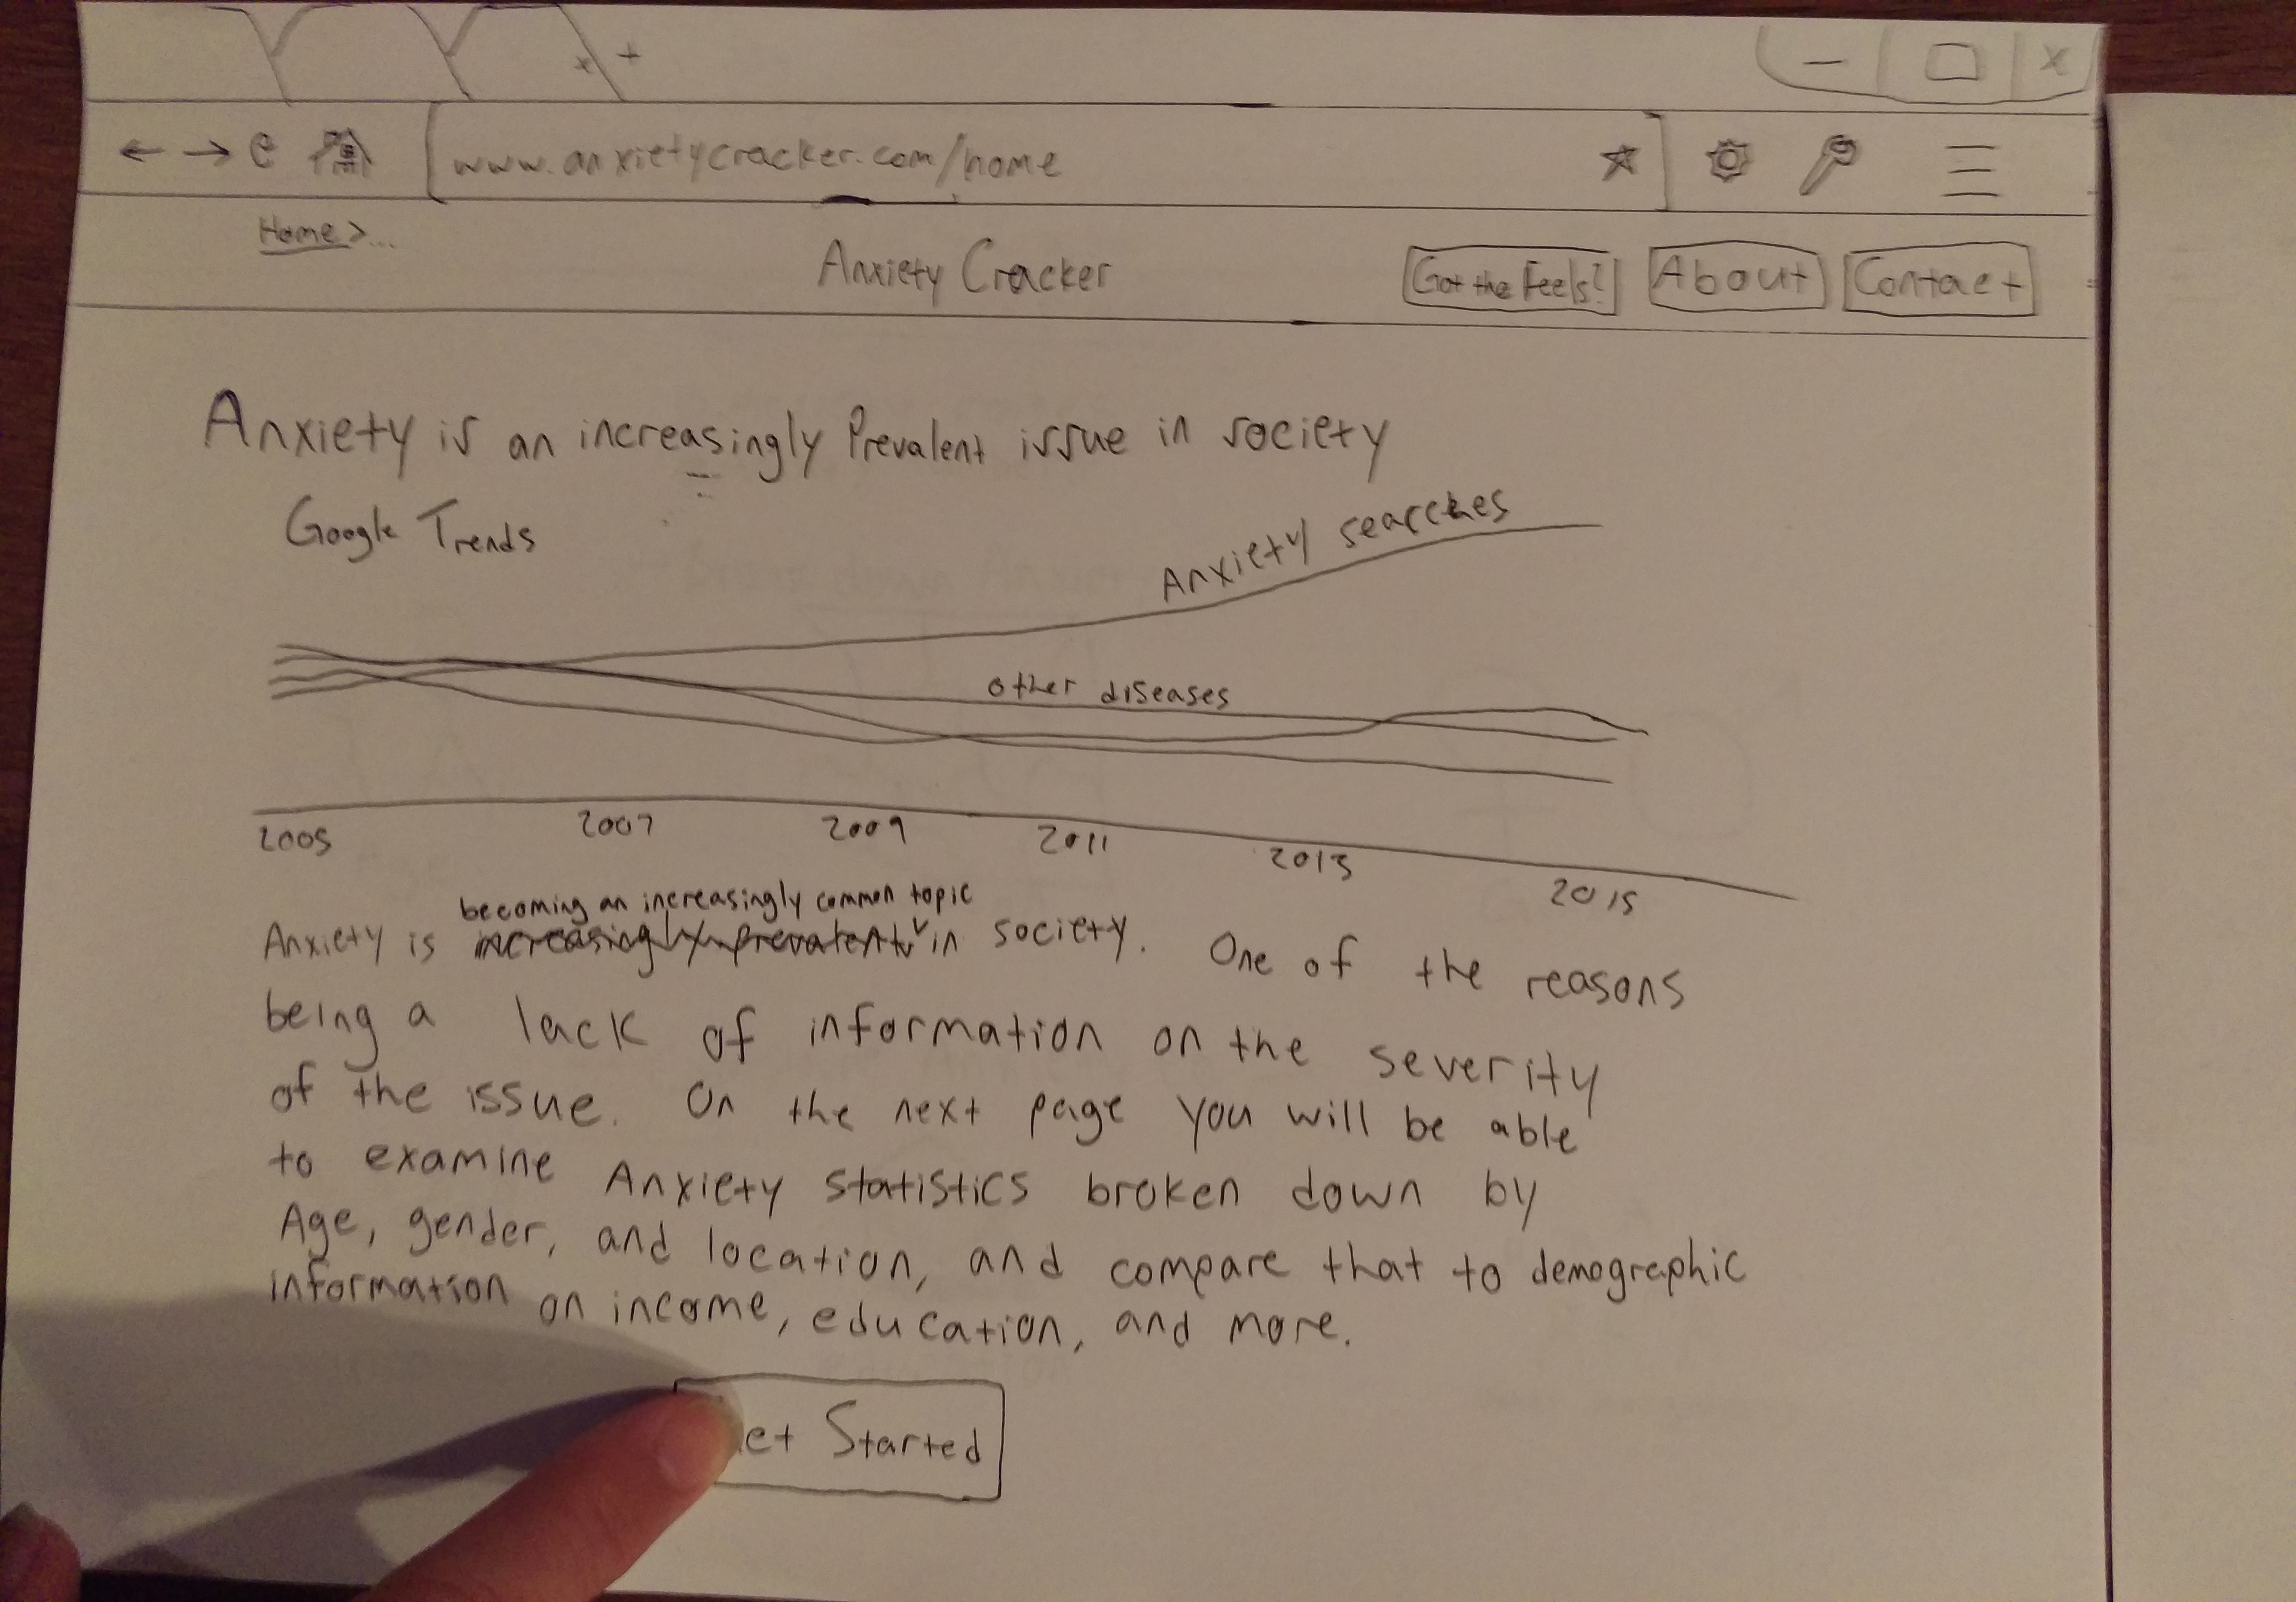 www.anxietycracker.com/home
Home >...
Anxiety Cracker
Got the Feels?
About
Contact
Anxiety is an increasingly Prevalent issue in society
Google Trends
Anxiety searches
other diseases
2005 2007 2009 2011 2013 2015
becoming an increasingly common topic
Anxiety is increasingly prevalent in society. One of the reasons
being a lack of information on the severity
of the issue. On the next page you will be able
to examine Anxiety statistics broken down by
Age, gender, and location, and compare that to demographic
information on income, education, and more.
et Started